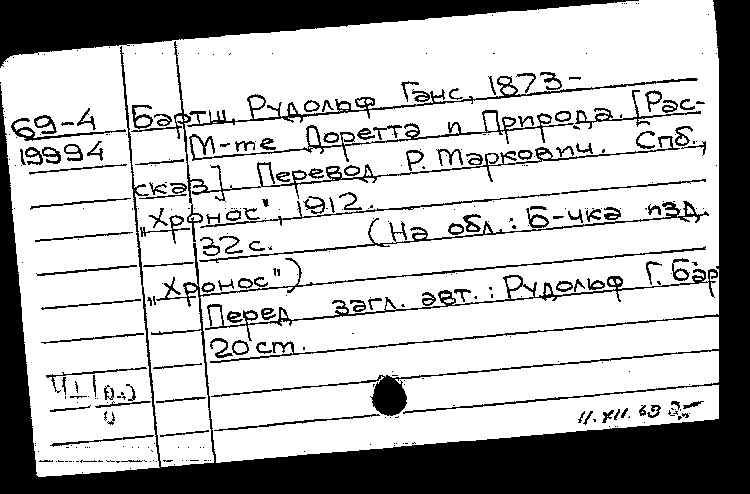 69-4
19994
Бартш, Рудольф Ганс, 1873-
М-те Доретта и Природа. [Рас-
сказ]. Перевод Р. Маркович. Спб.,
„Хронос", 1912.
32 с. (На обл.: Б-чка изд.
„Хронос").
Перед загл. авт.: Рудольф Г. Бар
20 cm.
11.XII.69